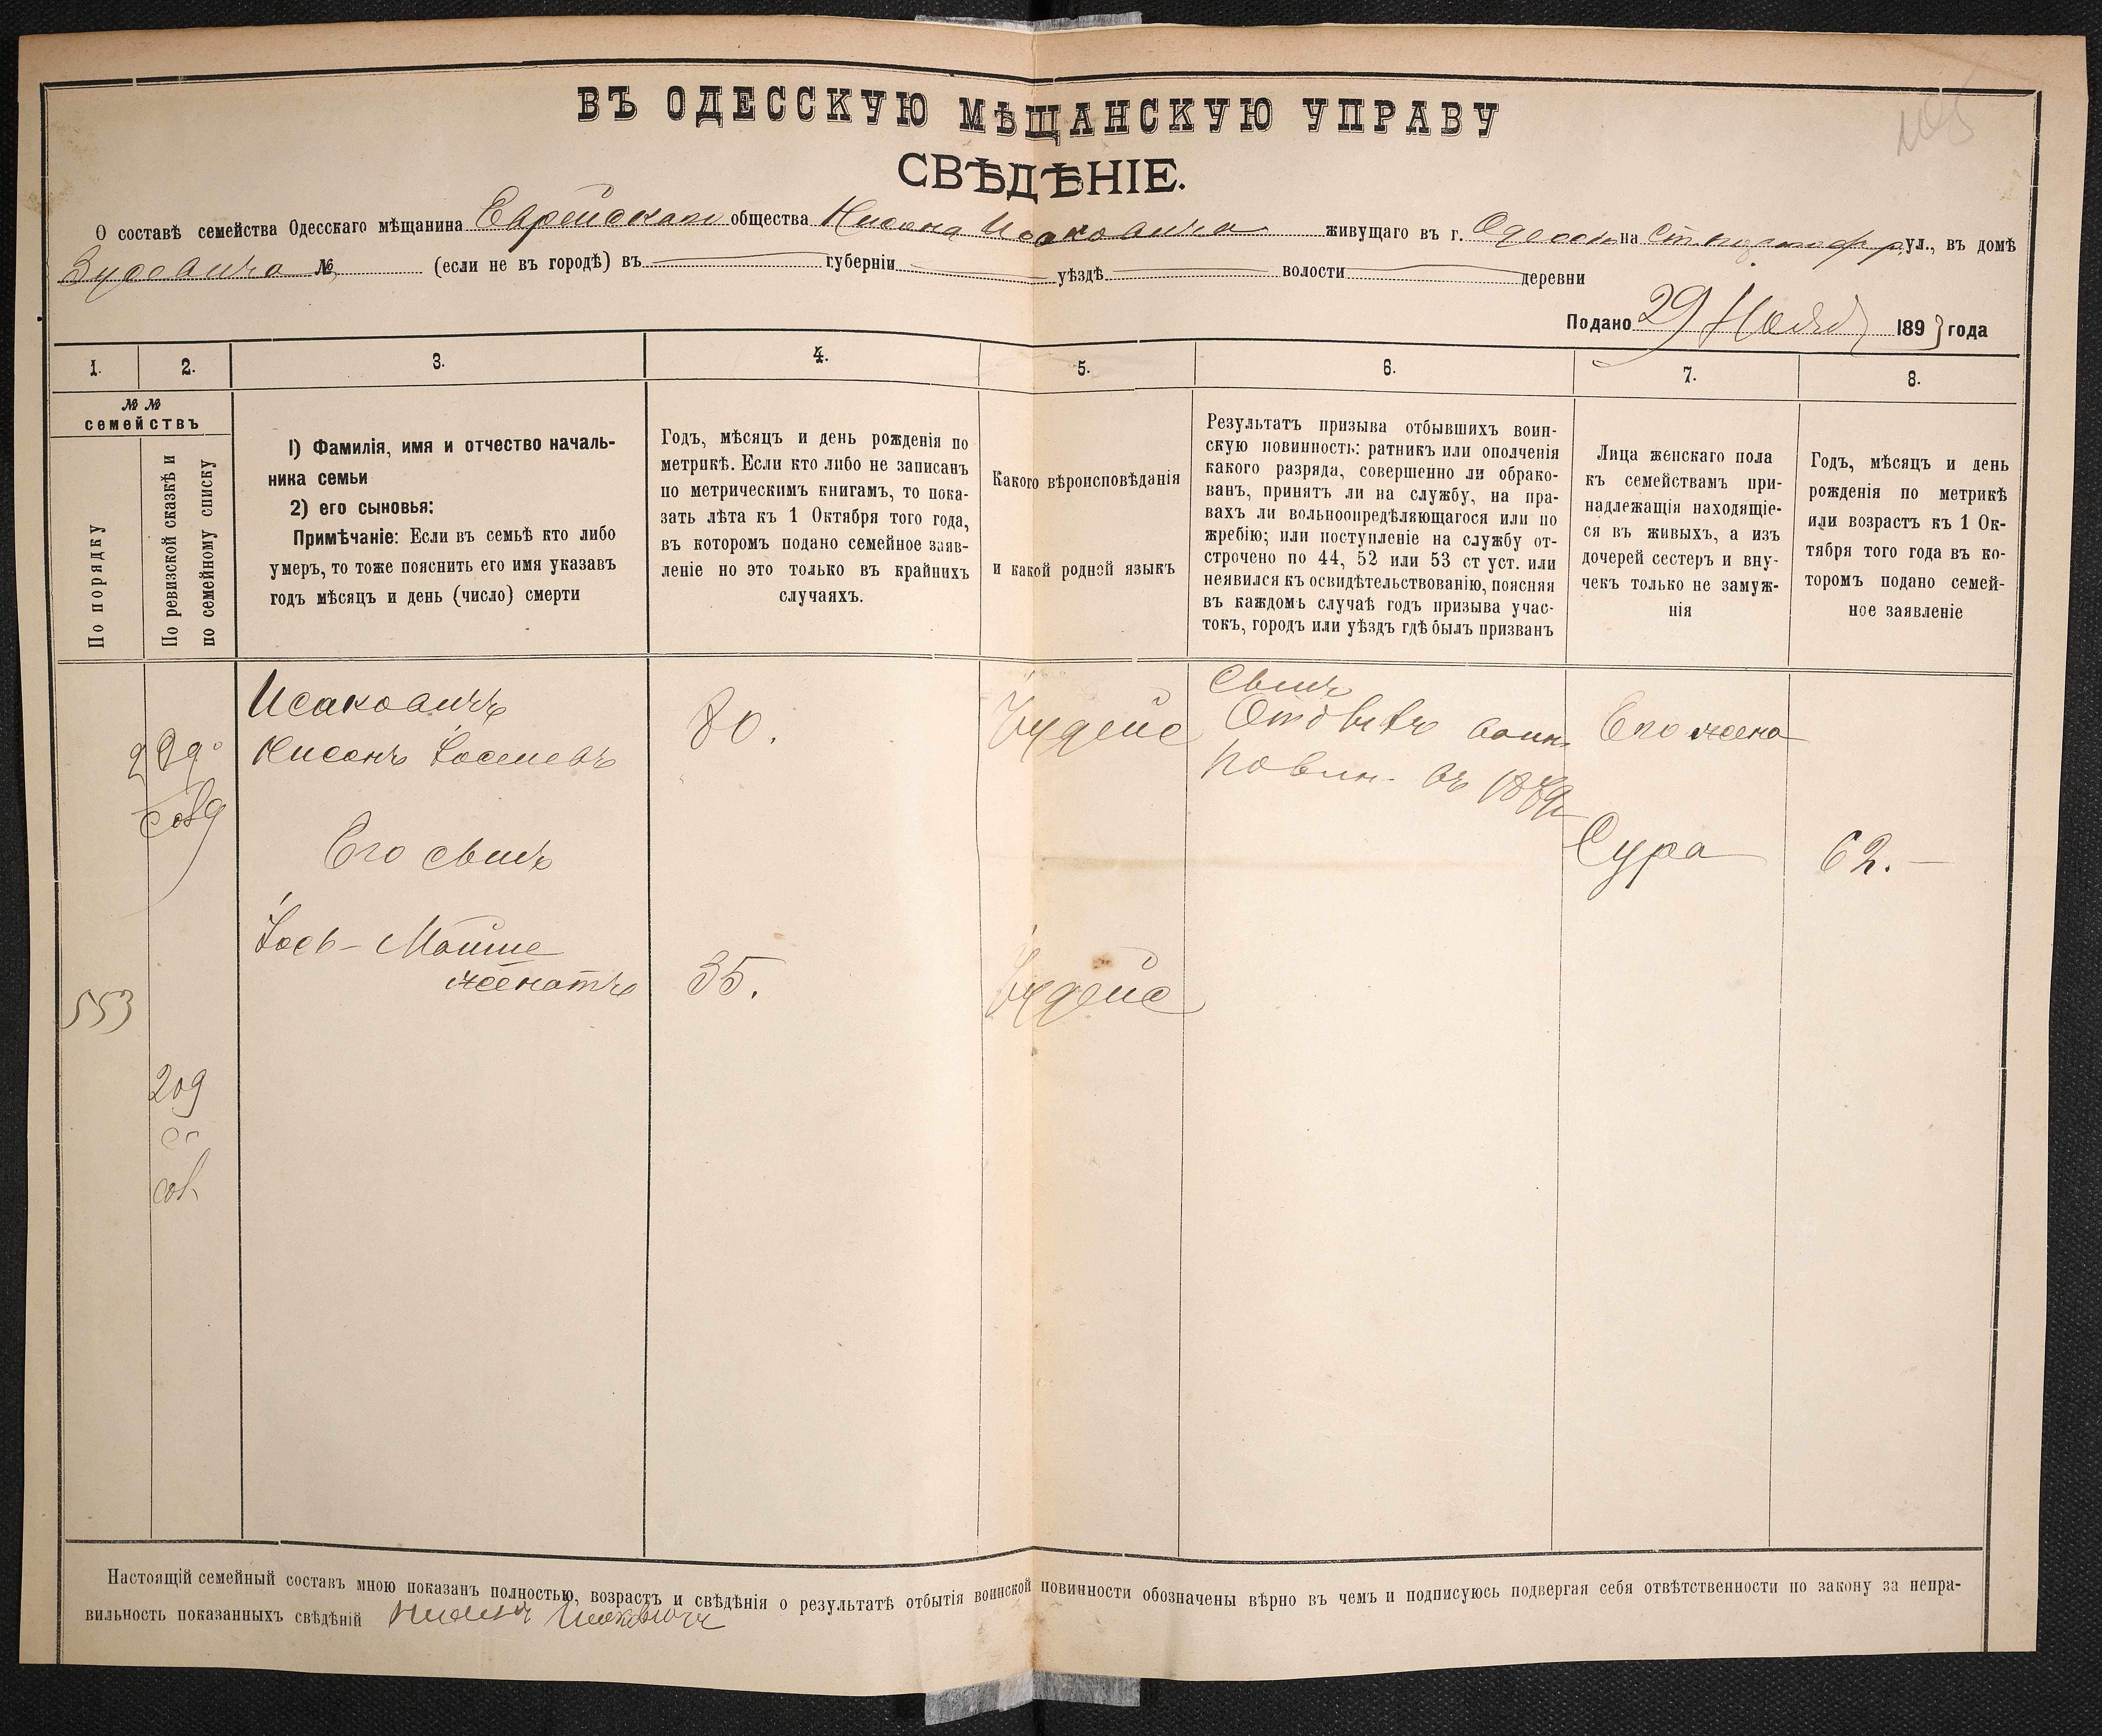 ВЪ ОДЕССКУЮ МѢЩАНСКУЮ УПРАВУ
СВѢДѢНІЕ.
О составѣ семейства Одесскаго мѣщанина Еврейскаго общества Нисона Исаковича живущаго въ г. Одессѣ на ул., въ домѣ
№ (если не въ городѣ) въ губерніи уѣздѣ волости деревни
Подано 29 Нояб 1893 года
1. 2. 3. 4. 5. 6. 7. 8.
№ №
семействъ
По порядку
По ревизской сказкѣ и
по семейному списку
1) Фамилія, имя и отчество началь-
ника семьи
2) его сыновья:
Примѣчаніе: Если въ семьѣ кто либо
умеръ, то тоже пояснить его имя указавъ
годъ мѣсяцъ и день (число) смерти
Годъ, мѣсяцъ и день рожденія по
метрикѣ. Если кто либо не записанъ
по метрическимъ книгамъ, то пока-
зать лѣта къ 1 Октября того года,
въ которомъ подано семейное заяв-
леніе но это только въ крайнихъ
случаяхъ.
Какого вѣроисповѣданія
и какой родной языкъ
Результатъ призыва отбывшихъ воин-
скую повинность: ратникъ или ополченія
какого разряда, совершенно ли обрако-
ванъ, принятъ ли на службу, на пра-
вахъ ли вольноопредѣляющагося или по
жребію; или поступленіе на службу от-
строчено по 44, 52 или 53 ст уст. или
неявился къ освидѣтельствованію, поясняя
въ каждомъ случаѣ годъ призыва учас-
токъ, городъ или уѣздъ гдѣ былъ призванъ
Лица женскаго пола
къ семействамъ при-
надлежащія находящіе-
ся въ живыхъ, а изъ
дочерей сестеръ и вну-
чекъ только не замуж-
нія
Годъ, мѣсяцъ и день
рожденія по метрикѣ
или возрастъ къ 1 Ок-
тября того года въ ко-
торомъ подано семей-
ное заявленіе
Исаковичъ
Нисонъ Іосіевъ
80.
Іудейс
Сынъ
Отбылъ воин.
повин. въ
Его жена
Сура
62.
Его сынъ
Іось-Мойше
женатъ
35.
Іудейс
553
209
Настоящій семейный составъ мною показанъ полностью, возрастъ и свѣдѣнія о результатѣ отбытія воинской повинности обозначены вѣрно въ чемъ и подписуюсь подвергая себя отвѣтственности по закону за непра-
вильность показанныхъ свѣдѣній Нисонъ Исаковичъ